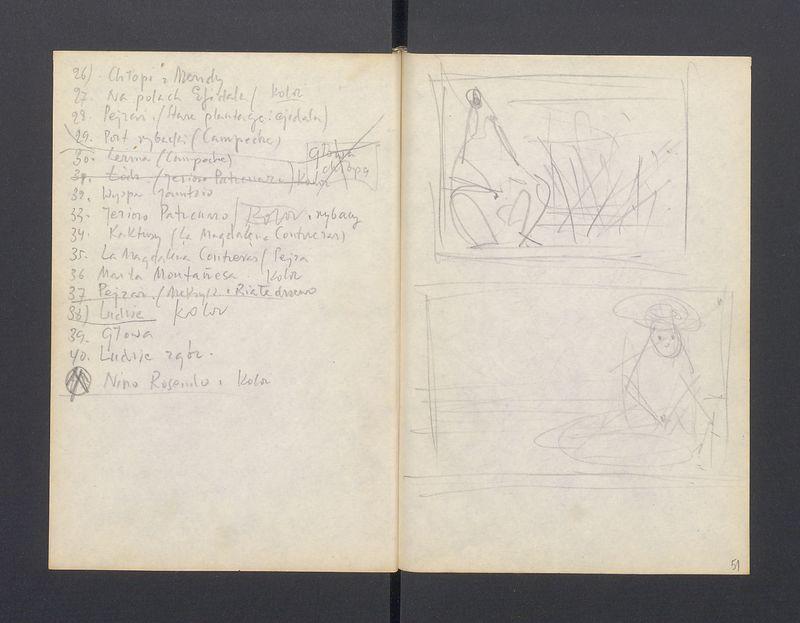 26). Chłopi z Meridy
27. Na polach Ejidala / Kolor
28. Pejzaż. / Stare plantacje: ejidala)
29. Port rybacki (Campeche)
30. Lerma (Campeche)
Głowa
chłopa
31. Łódź (Jezioro Patzcuaro) Kolor
32. Wyspa Janitzio
33. Jezioro Patzcuaro / Kolor. rybacy
34. Kaktusy (La Magdalena Contreras)
35. La Magdalena Contreras /
36 Maria Montañesa Kolor
37 Pejzaż. / Meksyk. Białe drzewo
38) Ludzie Kolor
39. Głowa
40. Ludzie z gór.
Nino Rosendo. Kolor
51